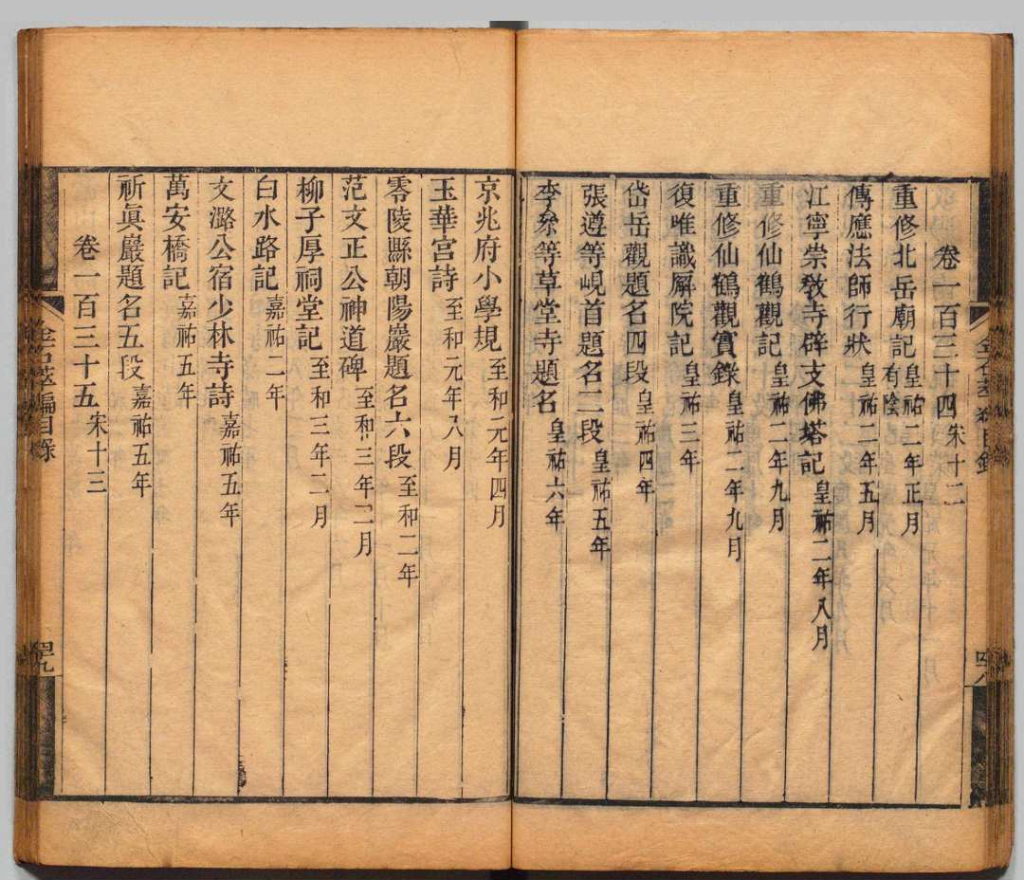 卷一百三十四 宋十二
重修北岳廟記 皇祐二年正月 有陰
傳應法師行狀 皇祐二年五月
江寧崇教寺辟支佛塔記 皇祐二年八月
重修仙鶴觀記 皇祐二年九月
重修仙鶴觀實錄 皇祐二年九月
復唯識廨院記 皇祐三年
岱岳觀題名四段 皇祐四年
張遵等峴首題名二段 皇祐五年
李𠫵等草堂寺題名 皇祐六年
京兆府小學規 至和元年四月
玉華宮詩 至和元年八月
零陵縣朝陽巖題名六段 至和二年
范文正公神道碑 至和三年二月
柳子厚祠堂記 至和三年二月
白水路記 嘉祐二年
文潞公宿少林寺詩 嘉祐五年
萬安橋記 嘉祐五年
祈眞巖題名五段 嘉祐五年
卷一百三十五 宋十三
金石萃編目錄
四九